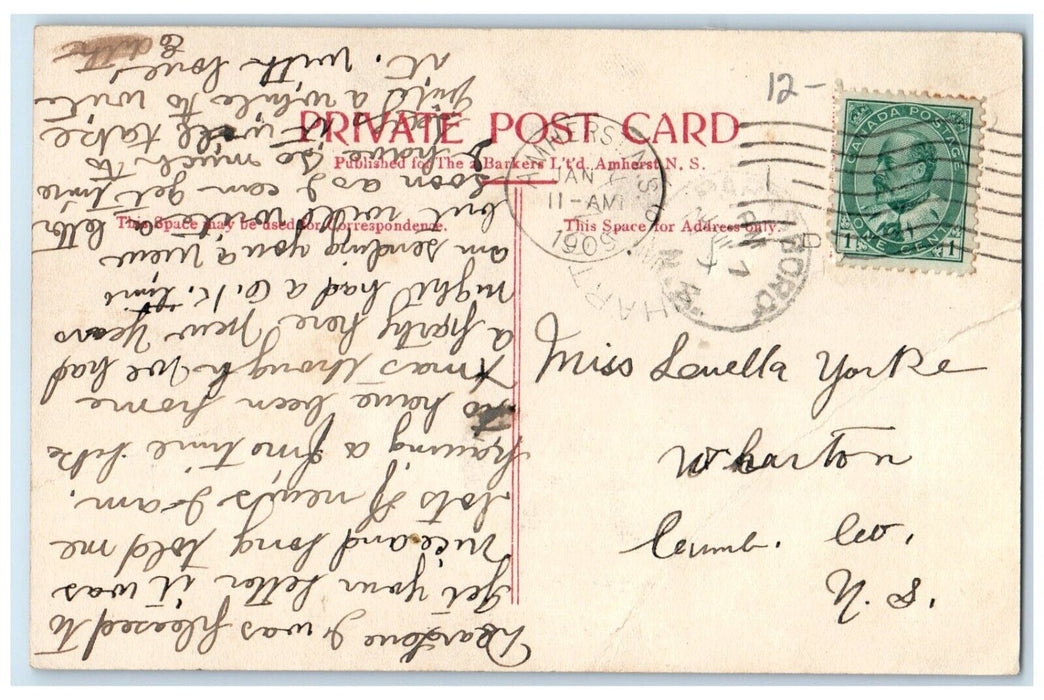 12-
PRIVATE POST CARD
Published for The a Barkers L't'd, Amherst N. S.
This Space may be used for Correspondence.
This Space for Address only.
CANADA POSTAGE
ONE CENT
1 1
AMHERST N.S.
JAN
11-AM
1909
HARTFORD
JAN 7
N.S.
Miss Louella Yorke
Wharton
Cumb. Co.
N. S.
Dearone I was pleased to
get your letter it was
nice and long told me
lots of news I am
having a fine time like
to have been home
Xmas though We had
a party here New Years
night had a O.K. time
am sending you a view
but will write a letter
soon as I can get time
I have so much to
it will take
quite a while to write
it. with love
Edith